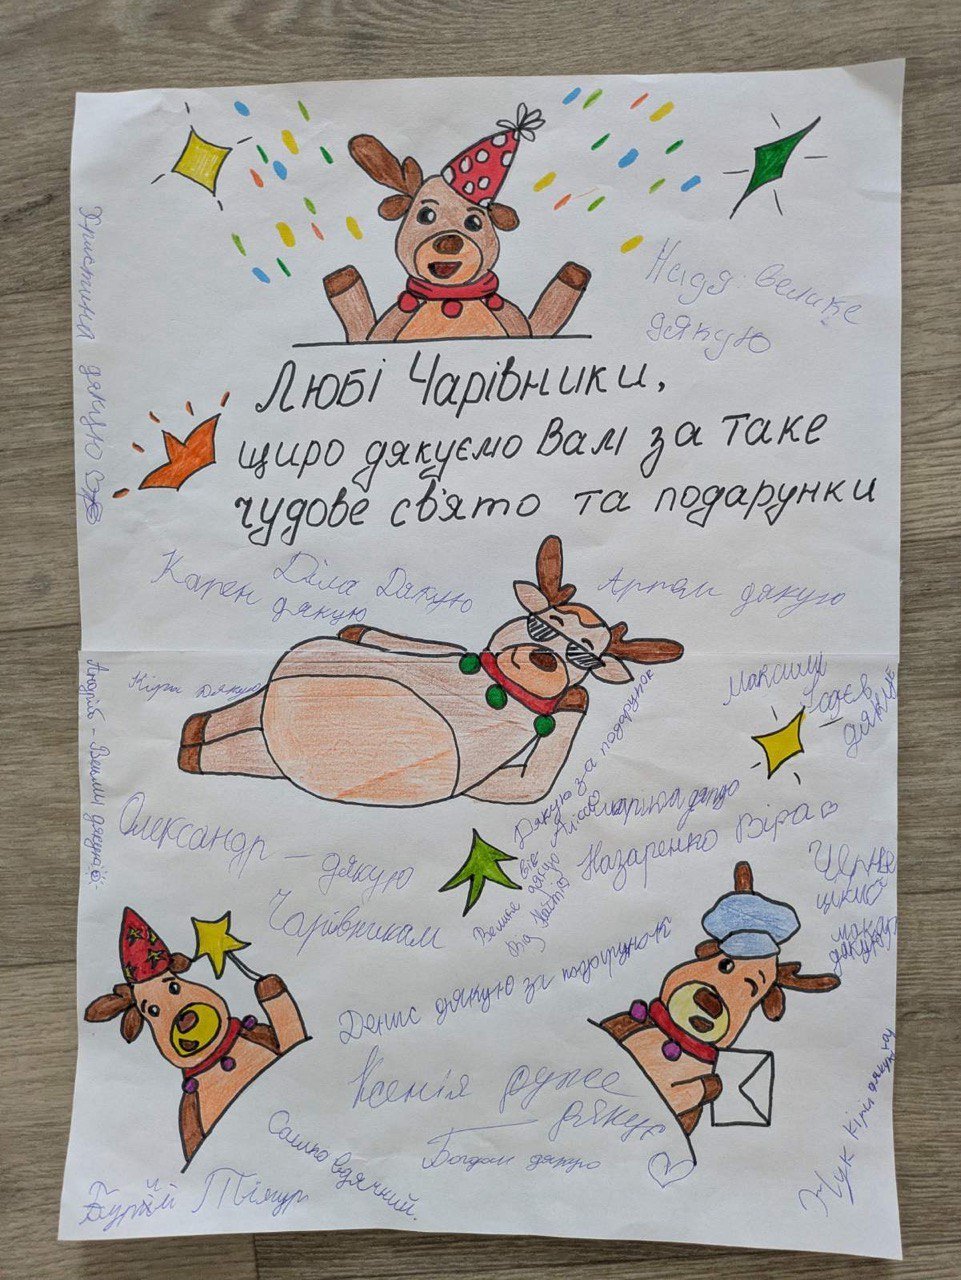 Христина дякую
Надя велике
дякую
Любі Чарівники,
щиро дякуємо Вам за таке
чудове свято та подарунки
Карен дякую
Діма Дякую
Артем дякую
Кіра дякую
Максим
дякує
Андрій - Вельми дякую
Олександр - дякую
Чарівникам
Дякую за подарунок
від Аліса
Велике дякую
від Настю
дякую
Назаренко Віра
дякую
Денис дякую за подарунок
Ксенія дуже
дякує
Богдан дякую
Сашко вдячний.
Бугай Тімур
Жук Кіріл дякую